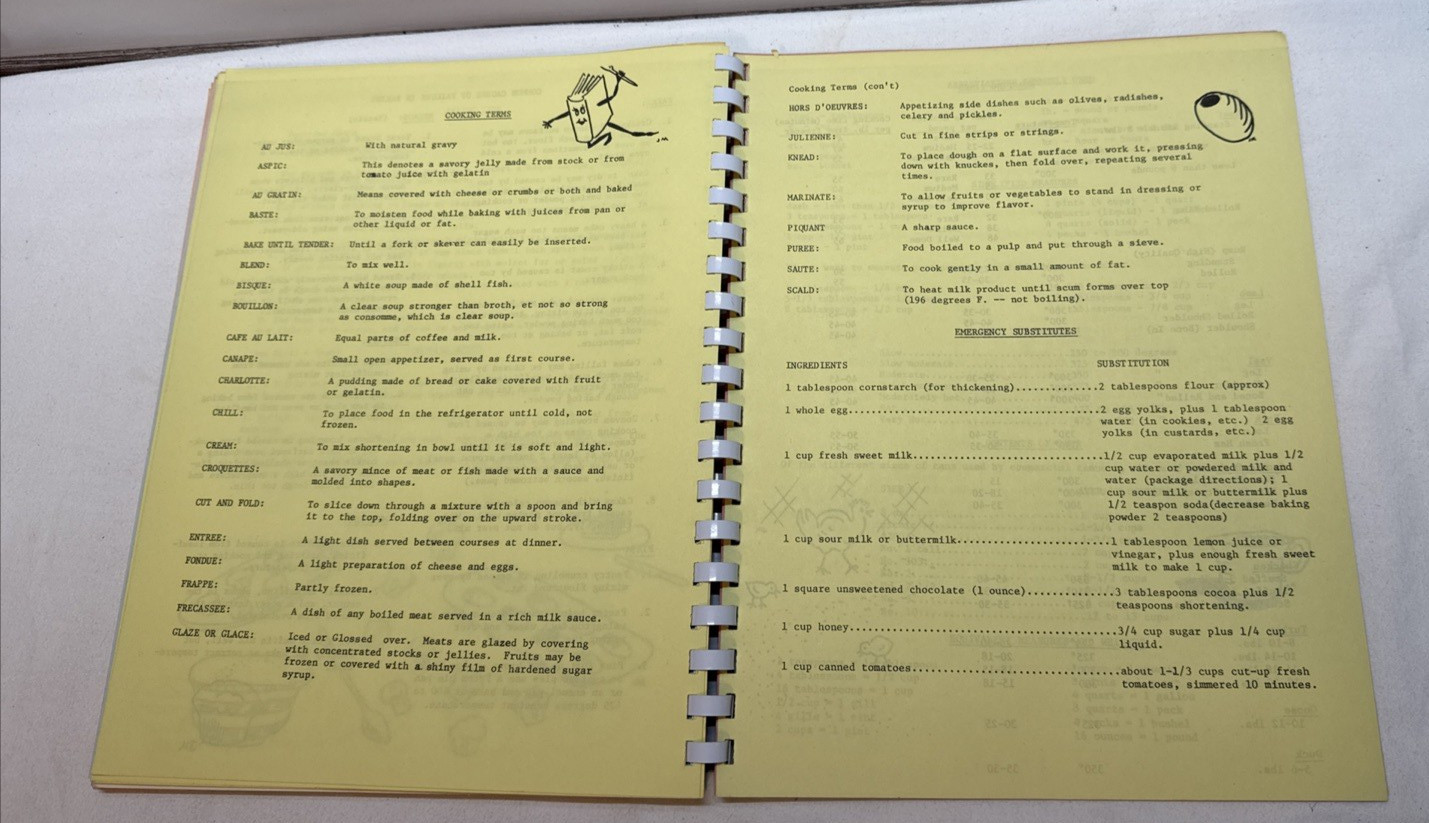 COOKING TERMS
AU JUS: With natural gravy
ASPIC: This denotes a savory jelly made from stock or from
tomato juice with gelatin
AU GRATIN: Means covered with cheese or crumbs or both and baked
BASTE: To moisten food while baking with juices from pan or
other liquid or fat.
BAKE UNTIL TENDER: Until a fork or skever can easily be inserted.
BLEND: To mix well.
BISQUE: A white soup made of shell fish.
BOUILLON: A clear soup stronger than broth, et not so strong
as consomme, which is clear soup.
CAFE AU LAIT: Equal parts of coffee and milk.
CANAPE: Small open appetizer, served as first course.
CHARLOTTE: A pudding made of bread or cake covered with fruit
or gelatin.
CHILL: To place food in the refrigerator until cold, not
frozen.
CREAM: To mix shortening in bowl until it is soft and light.
CROQUETTES: A savory mince of meat or fish made with a sauce and
molded into shapes.
CUT AND FOLD: To slice down through a mixture with a spoon and bring
it to the top, folding over on the upward stroke.
ENTREE: A light dish served between courses at dinner.
FONDUE: A light preparation of cheese and eggs.
FRAPPE: Partly frozen.
FRECASSEE: A dish of any boiled meat served in a rich milk sauce.
GLAZE OR GLACE: Iced or Glossed over. Meats are glazed by covering
with concentrated stocks or jellies. Fruits may be
frozen or covered with a shiny film of hardened sugar
syrup.
Cooking Terms (con't)
HORS D'OEUVRES: Appetizing side dishes such as olives, radishes,
celery and pickles.
JULIENNE: Cut in fine strips or strings.
KNEAD: To place dough on a flat surface and work it, pressing
down with knuckes, then fold over, repeating several
times.
MARINATE: To allow fruits or vegetables to stand in dressing or
syrup to improve flavor.
PIQUANT A sharp sauce.
PUREE: Food boiled to a pulp and put through a sieve.
SAUTE: To cook gently in a small amount of fat.
SCALD: To heat milk product until scum forms over top
(196 degrees F. -- not boiling).
EMERGENCY SUBSTITUTES
INGREDIENTS SUBSTITUTION
1 tablespoon cornstarch (for thickening).............2 tablespoons flour (approx)
1 whole egg........................................2 egg yolks, plus 1 tablespoon
water (in cookies, etc.) 2 egg
yolks (in custards, etc.)
1 cup fresh sweet milk..............................1/2 cup evaporated milk plus 1/2
cup water or powdered milk and
water (package directions); 1
cup sour milk or buttermilk plus
1/2 teaspon soda(decrease baking
powder 2 teaspoons)
1 cup sour milk or buttermilk........................1 tablespoon lemon juice or
vinegar, plus enough fresh sweet
milk to make 1 cup.
1 square unsweetened chocolate (1 ounce)..............3 tablespoons cocoa plus 1/2
teaspoons shortening.
1 cup honey..........................................3/4 cup sugar plus 1/4 cup
liquid.
1 cup canned tomatoes.................................about 1-1/3 cups cut-up fresh
tomatoes, simmered 10 minutes.